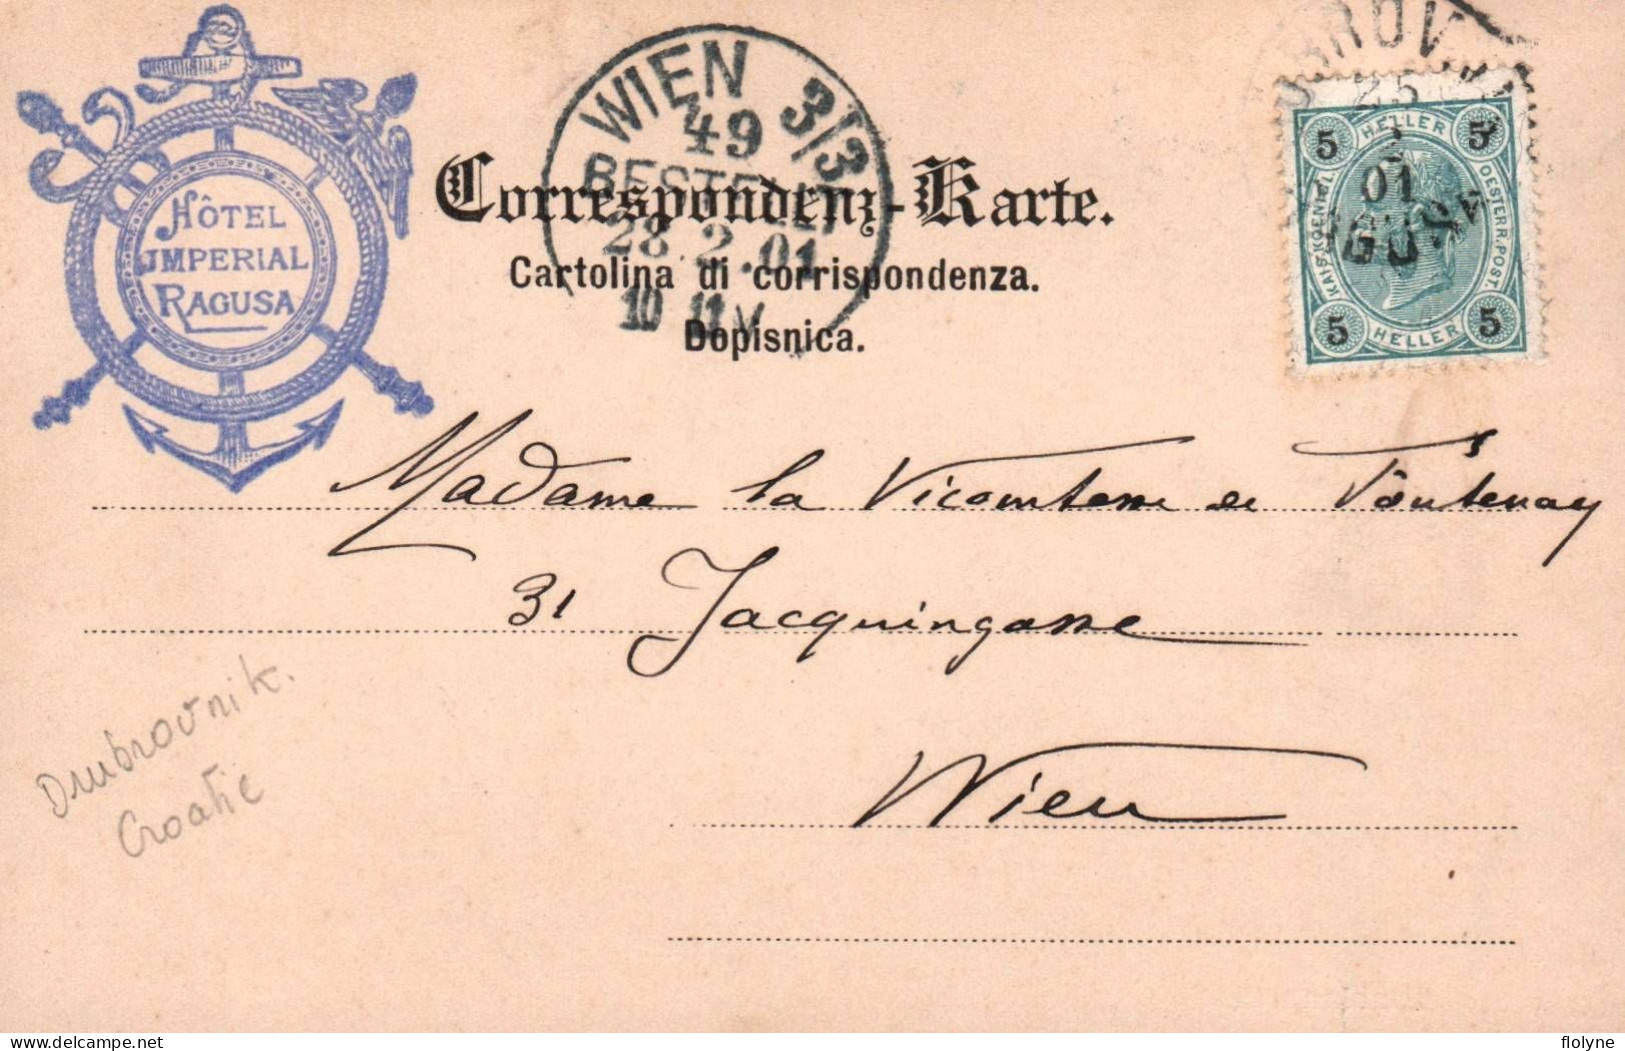 HÔTEL
IMPERIAL
RAGUSA
WIEN 3/3
49
BESTELLT
28.2.01
10 11 V
Correspondenz-Karte.
Cartolina di corrispondenza.
Dopisnica.
25
2
01
5 HELLER 5
KAIS. KOENIGL. OESTERR. POST.
5 HELLER 5
Madame la Vicomtesse de Fontenay
31 Jacquingasse
Wien
Drubrovnik.
Croatie
flolyne